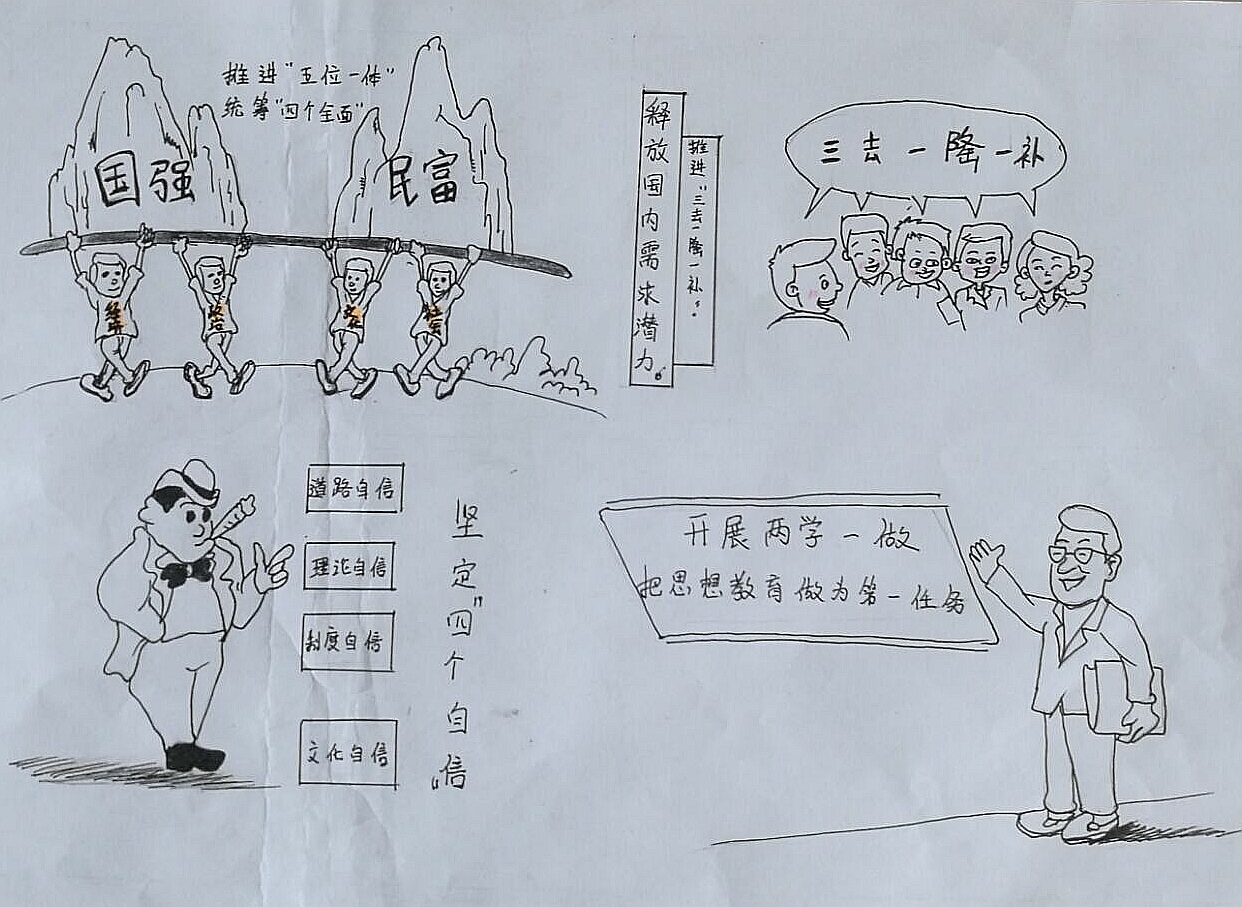 推进"五位一体"
统筹"四个全面"
国强
民富
经济
政治
文化
社会
释放国内需求潜力。
推进"三去一降一补"。
三去一降一补
道路自信
理论自信
制度自信
文化自信
坚定"四个自信"
开展两学一做
把思想教育做为第一任务